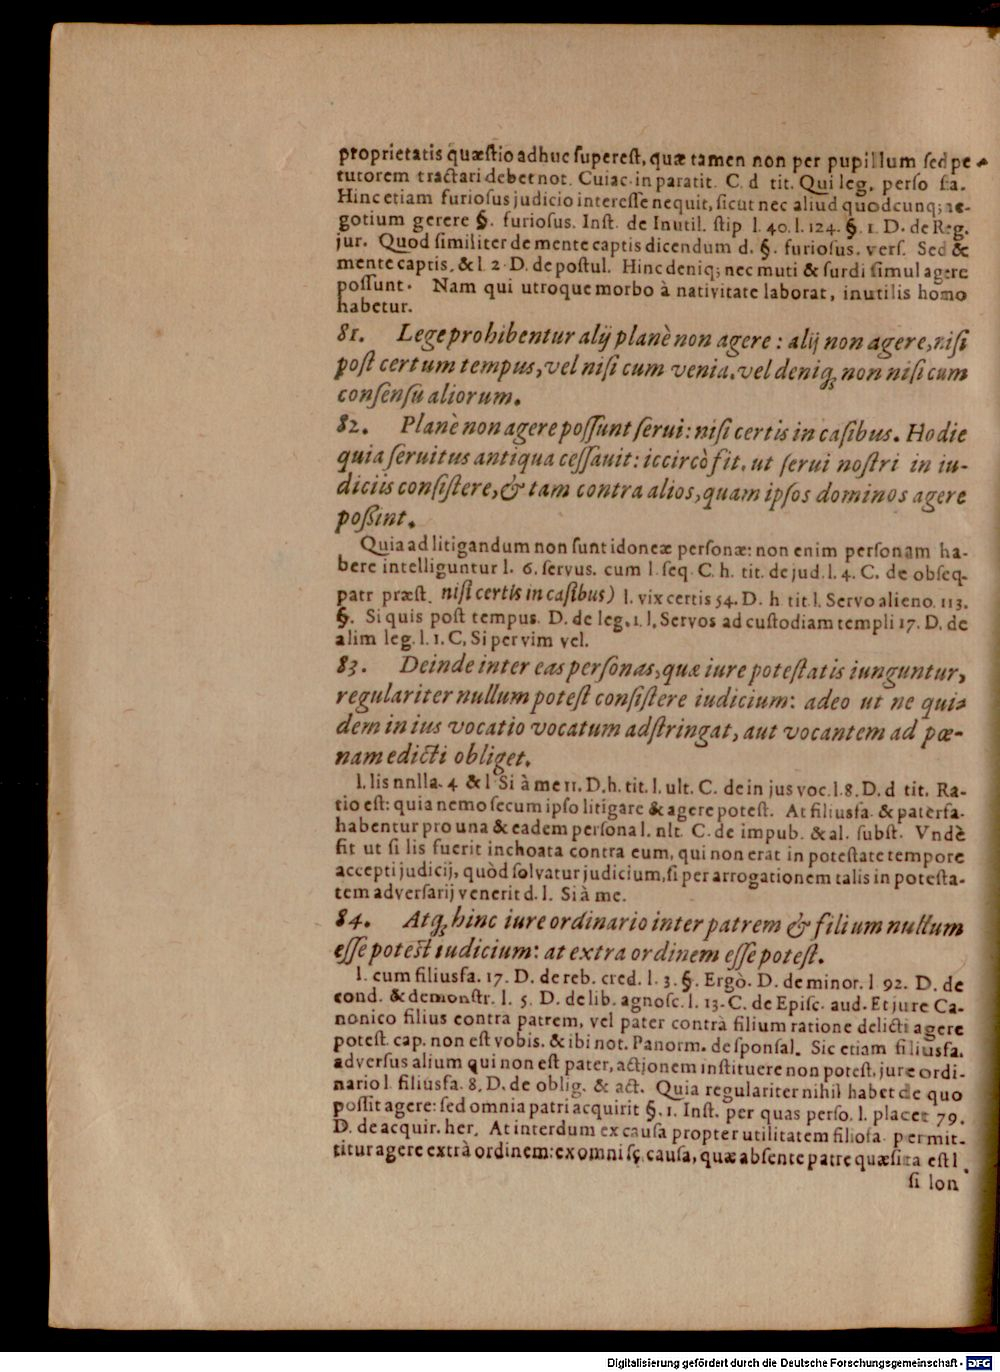 proprietatis quæſtio adhuc ſupereſt, quæ tamen non per pupillum ſed pe
tutorem tractari debet not. Cuiac. in paratit. C. d tit. Qui leg. perſo ſta.
Hinc etiam furioſus judicio intereſſe nequit, ſicut nec aliud quodcunq; ne-
gotium gerere §. furioſus. Inſt. de Inutil. ſtip l. 40. l. 124. §. 1. D. de Reg.
jur. Quod ſimiliter de mente captis dicendum d. §. furioſus. verſ. Sed &
mente captis. & l 2. D. de poſtul. Hinc deniq; nec muti & ſurdi ſimul agere
poſſunt. Nam qui utroque morbo à nativitate laborat, inutilis homo
habetur.
81. Lege prohibentur alij planè non agere: alij non agere, niſi
poſt certum tempus, vel niſi cum venia. vel deniq; non niſi cum
conſenſu aliorum.
82. Planè non agere poſſunt ſerui: niſi certis in caſibus. Hodie
quia ſeruitus antiqua ceſſauit: iccircò fit, ut ſerui noſtri in iu-
diciis conſiſtere, & tam contra alios, quam ipſos dominos agere
poßint.
Quia ad litigandum non ſunt idoneæ perſonæ: non enim perſonam ha-
bere intelliguntur l. 6. ſervus. cum l. ſeq. C. h. tit. de jud. l. 4. C. de obſeq.
patr præſt. niſi certis in caſibus) l. vix certis 54. D. h tit. l. Servo alieno. 113.
§. Si quis poſt tempus. D. de leg. 1. l. Servos ad cuſtodiam templi 17. D. de
alim leg. l. 1. C, Si per vim vel.
83. Deinde inter eas perſonas, quæ iure poteſtatis iunguntur,
regulariter nullum poteſt conſiſtere iudicium: adeo ut ne qui-
dem in ius vocatio vocatum adſtringat, aut vocantem ad pœ-
nam edicti obliget.
l. lis nnlla. 4 & l Si à me 11. D. h. tit. l. ult. C. de in jus voc. l. 8. D. d tit. Ra-
tio eſt: quia nemo ſecum ipſo litigare & agere poteſt. At filiusfa. & paterfa.
habentur pro una & eadem perſona l. nlt. C. de impub. & al. ſubſt. Vndè
fit ut ſi lis fuerit inchoata contra eum, qui non erat in poteſtate tempore
accepti judicij, quòd ſolvatur judicium, ſi per arrogationem talis in poteſta-
tem adverſarij venerit d. l. Si à me.
84. Atq; hinc iure ordinario inter patrem & filium nullum
eſſe poteſt iudicium: at extra ordinem eſſe poteſt.
l. cum filiusfa. 17. D. de reb. cred. l. 3. §. Ergò. D. de minor. l 92. D. de
cond. & demonſtr. l. 5. D. de lib. agnoſc. l. 13. C. de Epiſc. aud. Et jure Ca-
nonico filius contra patrem, vel pater contrà filium ratione delicti agere
poteſt. cap. non eſt vobis. & ibi not. Panorm. de ſponſal. Sic etiam filiusfa.
adverſus alium qui non eſt pater, actjonem inſtituere non poteſt, jure ordi-
nario l. filiusfa. 8. D. de oblig. & act. Quia regulariter nihil habet de quo
poſſit agere: ſed omnia patri acquirit §. 1. Inſt. per quas perſo. l. placet 79.
D. de acquir. her. At interdum ex cauſa propter utilitatem filiofa. permit-
titur agere extrà ordinem: ex omni ſc. cauſa, quæ abſente patre quæſita eſt l.
ſi lon
Digitalisierung gefördert durch die Deutsche Forschungsgemeinschaft - DFG